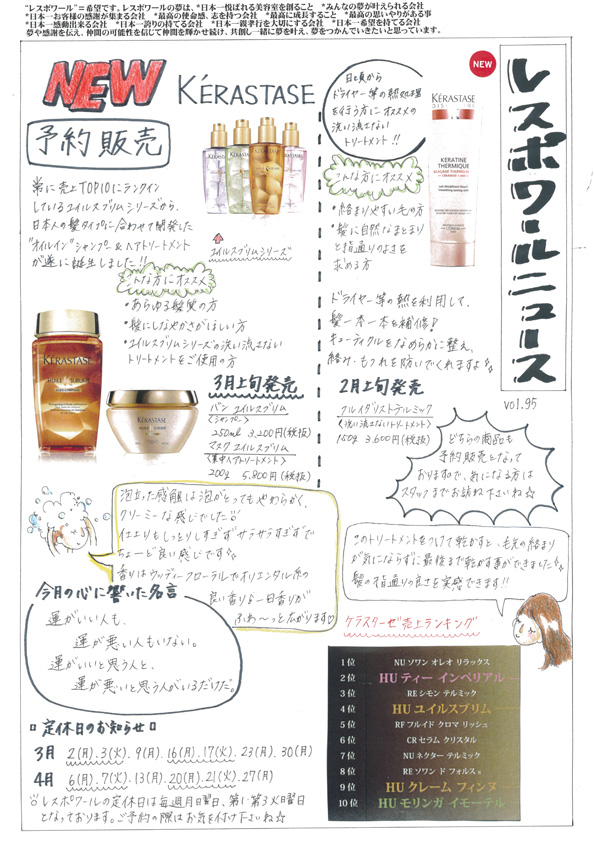 "レスポワール"=希望です。レスポワールの夢は、*日本一悦ばれる美容室を創ること *みんなの夢が叶えられる会社
*日本一お客様の感謝が集まる会社 *最高の使命感、志を持つ会社 *最高に成長すること *最高の思いやりがある事
*日本一感動出来る会社 *日本一誇りの持てる会社 *日本一親孝行を大切にする会社 *日本一希望を持てる会社
夢や感謝を伝え、仲間の可能性を信じて仲間を輝かせ続け、共創し一緒に夢を叶え、夢をつかんでいきたいと思っています。
レスポワールニュース
vol.95
NEW
KÉRASTASE
予約販売
常に売上TOP10にランクイン
しているユイルスブリムシリーズから、
日本人の髪タイプに合わせて開発した
"オイルイン"シャンプー&ヘアトリートメント
が遂に誕生しました!!
ユイルスブリムシリーズ
こんな方にオススメ
・あらゆる髪質の方
・髪にしなやかさがほしい方
・ユイルスブリムシリーズの洗い流さない
トリートメントをご使用の方
KÉRASTASE
KÉRASTASE
3月上旬発売
バン ユイルスブリム
<シャンプー>
250ml 3,200円(税抜)
マスク ユイルスブリム
<集中ヘアトリートメント>
200g 5,800円(税抜)
泡立った感触は泡がとってもやわらかく、
クリーミーな感じでした
仕上りもしっとりしすぎずサラサラすぎずで
ちょーど良い感じです
香りはウッディフローラルでオリエンタル系の
良い香り♪一日香りが
ふわ〜っと広がります♡
日々頃から
ドライヤー等の熱処理
を行う方にオススメの
洗い流さない
トリートメント!!
NEW
KÉRASTASE
KERATINE
THERMIQUE
こんな方にオススメ
・絡まりやすい毛の方
・髪に自然なまとまり
と指通りのよさを
求める方
ドライヤー等の熱を利用して、
髪一本一本を補修♪
キューティクルをなめらかに整え、
絡み・もつれを防いでくれますよ
2月上旬発売
<洗い流さないトリートメント>
150g 3,600円(税抜)
どちらの商品も
予約販売となって
おりますので、気になる方は
スタッフまでお訪ね下さいね☆
このトリートメントをつけて乾かすと、毛先の絡まり
が気にならずに最後まで乾かす事ができました
髪の指通りの良さを実感できます!!
今月の心に響いた名言
運がいい人も、
運が悪い人もいない。
運がいいと思う人と、
運が悪いと思う人がいるだけだ。
ケラスターゼ売上ランキング
1位 NU ソワン オレオ リラックス
2位 HU ティー インペリアル
3位 RE シモン テルミック
4位 HU ユイルスブリム
5位 RF フルイド クロマ リッシュ
6位 CR セラム クリスタル
7位 NU ネクター テルミック
8位 RE ソワン ド フォルス
9位 HU クレーム フィンヌ
10位 HU モリンガ イモーテル
定休日のお知らせ
3月 2(月).3(火).9(月).16(月).17(火).23(月).30(月)
4月 6(月).7(火).13(月).20(月).21(火).27(月)
レスポワールの定休日は毎週月曜日、第1・第3火曜日
となっております。ご予約の際はお気を付け下さいね☆